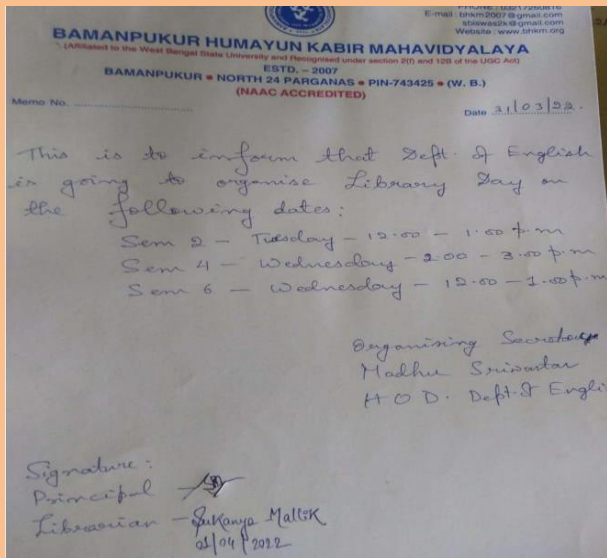 E-mail : bhkm2007@gmail.com
Website : www.bhkm.org
BAMANPUKUR HUMAYUN KABIR MAHAVIDYALAYA
(Affiliated to the West Bengal State University and Recognised under section 2(f) and 12B of the UGC Act)
ESTD. - 2007
BAMANPUKUR • NORTH 24 PARGANAS • PIN-743425 • (W. B.)
(NAAC ACCREDITED)
Memo No.
Date 31/03/22.
This is to inform that Deptt. of English
is going to organise Library Day on
the following dates:
Sem 2 - Tuesday - 12.00 - 1.00 p.m
Sem 4 - Wednesday - 2.00 - 3.00 p.m
Sem 6 - Wednesday - 12.00 - 1.00 p.m
Organising Secretary
Madhu Sriwastav
H O D. Deptt. of Engli
Signature :
Principal -
Librarian - Sukanya Mallik
01/04/2022